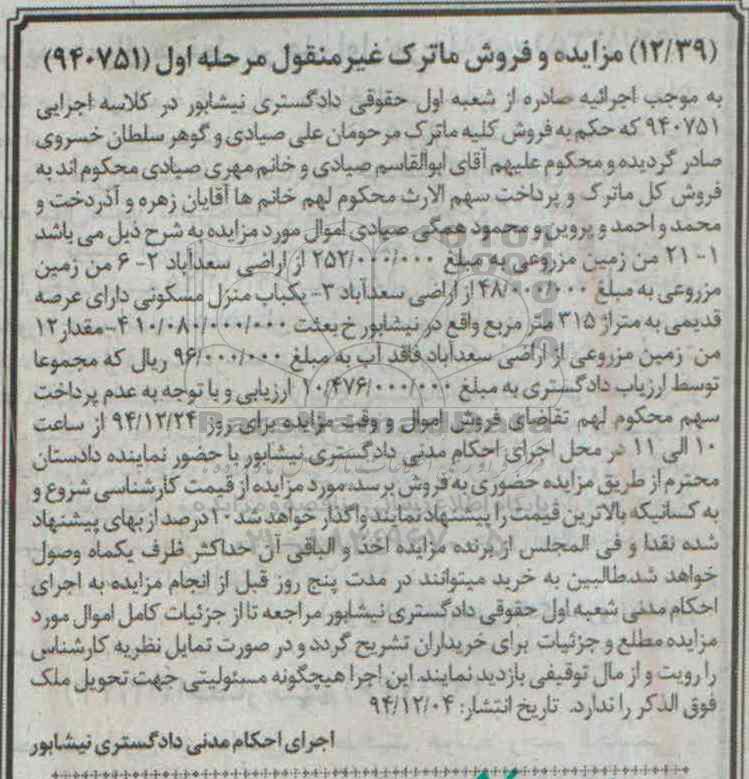 (۱۲/۳۹) مزایده و فروش ماترک غیرمنقول مرحله اول (۹۴۰۷۵۱)
به موجب اجرائیه صادره از شعبه اول حقوقی دادگستری نیشابور در کلاسه اجرایی
۹۴۰۷۵۱ که حکم به فروش کلیه ماترک مرحومان علی صیادی و گوهر سلطان خسروی
صادر گردیده و محکوم علیهم آقای ابوالقاسم صیادی و خانم مهری صیادی محکوم اند به
فروش کل ماترک و پرداخت سهم الارث محکوم لهم خانم ها آقایان زهره و آذردخت و
محمد و احمد و پروین و محمود همگی صیادی اموال مورد مزایده به شرح ذیل می باشد
۱- ۲۱ من زمین مزروعی به مبلغ ۲۵۲/۰۰۰/۰۰۰ از اراضی سعدآباد ۲- ۶ من زمین
مزروعی به مبلغ ۴۸/۰۰۰/۰۰۰ از اراضی سعدآباد ۳- یکباب منزل مسکونی دارای عرصه
قدیمی به متراژ ۳۱۵ متر مربع واقع در نیشابور خ بعثت ۱۰/۰۸۰/۰۰۰/۰۰۰ ۴-مقدار ۱۲
من زمین مزروعی از اراضی سعدآباد فاقد آب به مبلغ ۹۶/۰۰۰/۰۰۰ ریال که مجموعا
توسط ارزیاب دادگستری به مبلغ ۱۰/۴۷۶/۰۰۰/۰۰۰ ارزیابی و با توجه به عدم پرداخت
سهم محکوم لهم تقاضای فروش اموال و وقت مزایده برای روز ۹۴/۱۲/۲۴ از ساعت
۱۰ الی ۱۱ در محل اجرای احکام مدنی دادگستری نیشابور با حضور نماینده دادستان
محترم از طریق مزایده حضوری به فروش برسد مورد مزایده از قیمت کارشناسی شروع و
به کسانیکه بالاترین قیمت را پیشنهاد نمایند واگذار خواهد شد ۱۰درصد از بهای پیشنهاد
شده نقدا و فی المجلس از برنده مزایده اخذ و الباقی آن حداکثر ظرف یکماه وصول
خواهد شد.طالبین به خرید میتوانند در مدت پنج روز قبل از انجام مزایده به اجرای
احکام مدنی شعبه اول حقوقی دادگستری نیشابور مراجعه تا از جزئیات کامل اموال مورد
مزایده مطلع و جزئیات برای خریداران تشریح گردد و در صورت تمایل نظریه کارشناس
را رویت و از مال توقیفی بازدید نمایند. این اجرا هیچگونه مسئولیتی جهت تحویل ملک
فوق الذکر را ندارد. تاریخ انتشار: ۹۴/۱۲/۰۴
اجرای احکام مدنی دادگستری نیشابور